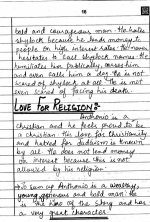 18
bold and courageous man. He hates
shylock because he lends money to
people on high interest rates. He never
hesitates to call shylock names. He
humiliates him publically, curses him
and even calls him a dog. He is not
scared of shylock at all. He is not
even scared of facing his death.
LOVE FOR RELIGION:-
Anthonio is a
christian and he feels proud to be
a christian. The love for christianity
and hatred for Judaism is known
by all. He does not lend money
on interest because this is not
allowed by his religion.
To sum up Anthonio is a wealthy,
young, generous and bold man. He
is the hero of the story and has
a very great character.